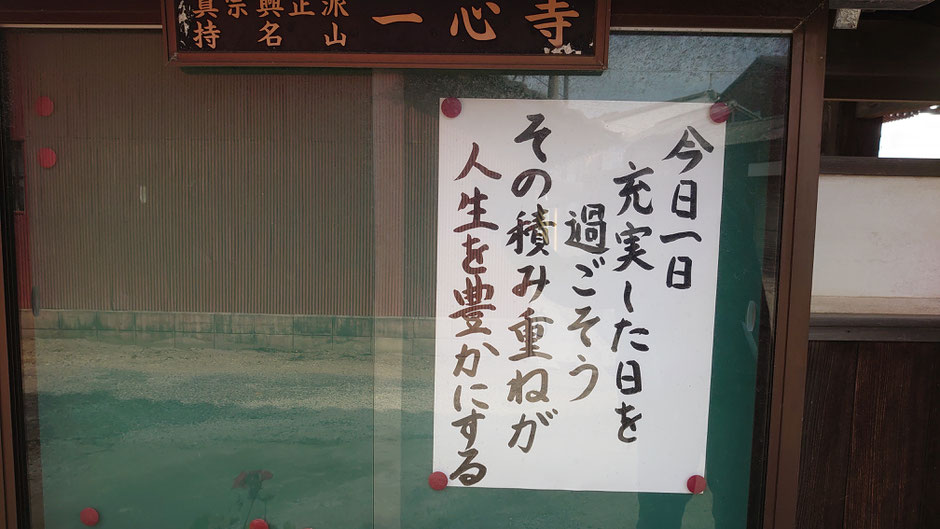 真宗興正派
持名山
一心寺
今日一日
充実した日を
過ごそう
その積み重ねが
人生を豊かにする